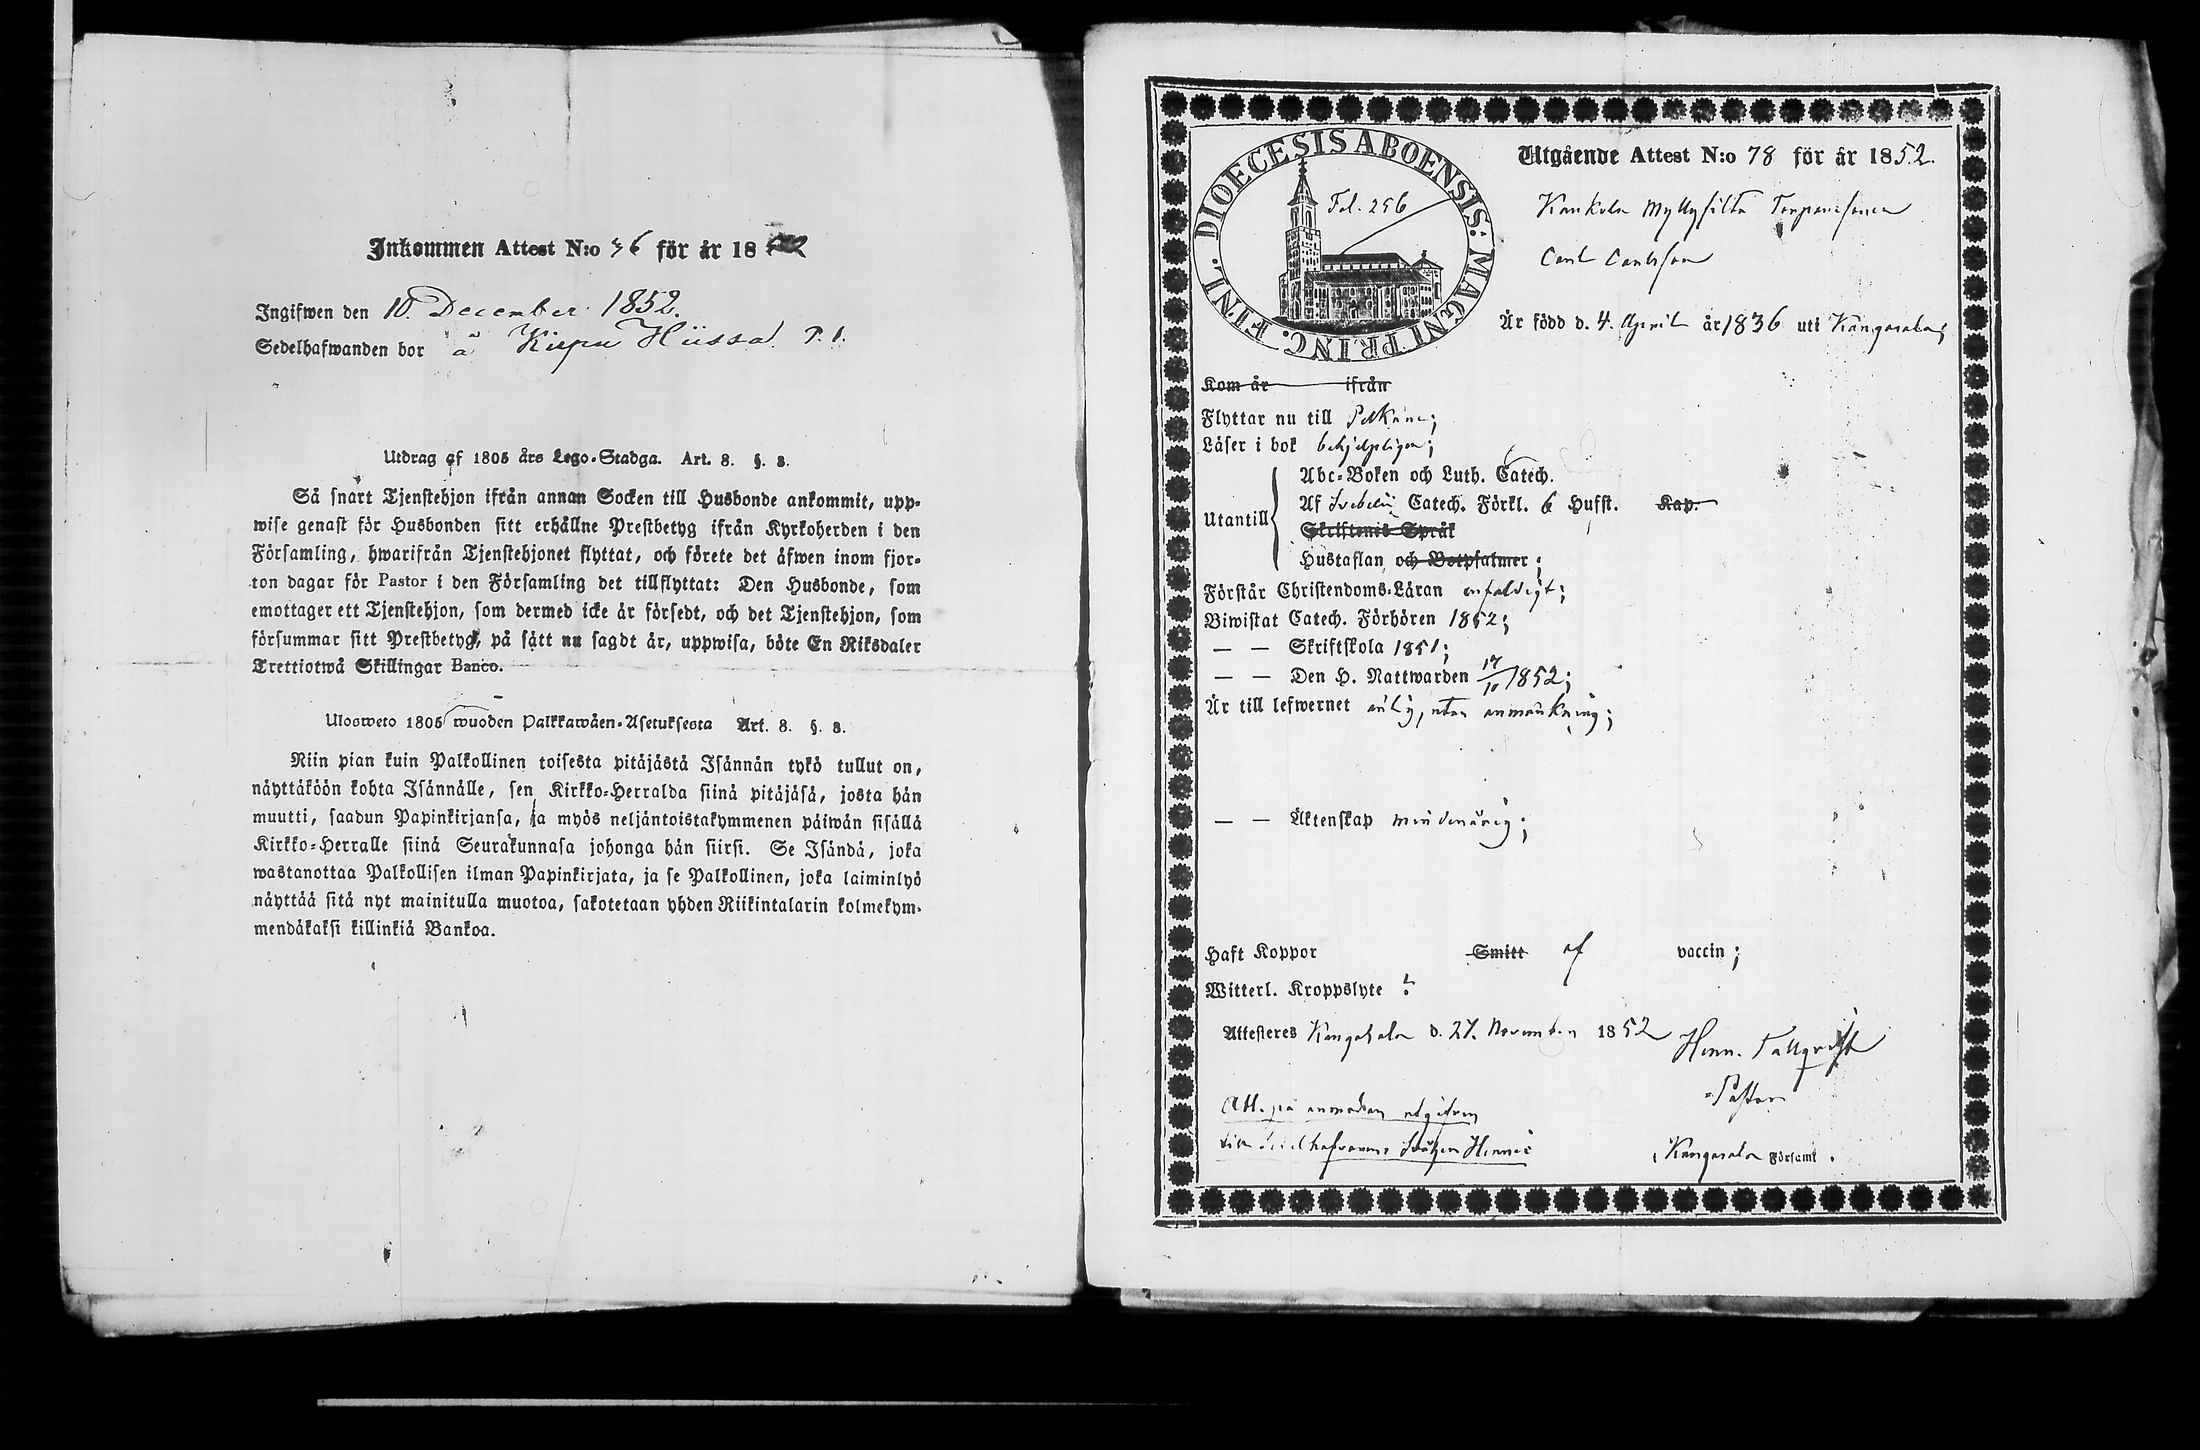 Inkommen Attest N:o 36 för år 18
Ingifwen den 10. December 1852.
Sedelhafwanden bor å Hiissa P. 1.
Utdrag af 1805 års Lego-Stadga. Art. 8. §. 8.
Så snart Tjenstehjon ifrån annan Socken till Husbonde ankommit, upp-
wise genast för Husbonden sitt erhållne Prestbetyg ifrån Kyrkoherden i den
Församling, hwarifrån Tjenstehjonet flyttat, och förete det äfwen inom fjor-
ton dagar för Pastor i den Församling det tillflyttat: Den Husbonde, som
emottager ett Tjenstehjon, som dermed icke är försedt, och det Tjenstehjon, som
försummar sitt Prestbetyg, på sätt nu sagdt är, uppwisa, böte En Riksdaler
Trettiotwå Skillingar Banco.
Ulosweto 1805 wuoden Palkkawäen-Asetuksesta Art. 8. §. 8.
Niin pian kuin Palkollinen toisesta pitäjästä Isännän tykö tullut on,
näyttäköön kohta Isännälle, sen Kirkko-Herralda siinä pitäjäsä, josta hän
muutti, saadun Papinkirjansa, ja myös neljäntoistakymmenen päiwän sisällä
Kirkko-Herralle siinä Seurakunnasa johonga hän siirsi. Se Isändä, joka
wastanottaa Palkollisen ilman Papinkirjata, ja se Palkollinen, joka laiminlyö
näyttää sitä nyt mainitulla muotoa, sakotetaan yhden Riikintalarin kolmekym-
mendäkaksi killinkiä Bankoa.
DIOECESIS ABOENSIS. MAGNI PRINC. FINL.
Fol. 256
Utgående Attest N:o 78 för år 1852.
Kankola Myllysilta Torparesonen
Carl Carlsson
Är född d. 4. April år 1836 uti Kangasala;
Kom år ifrån
Flyttar nu till Pelkäne;
Läser i bok behjelpligen;
Utantill
Abc-Boken och Luth. Catech.
Af Svebelii Catech. Förkl. 6 Hufst. Kap.
Skriftenes Språk
Hustaflan och Botpsalmer;
Förstår Christendoms-Läran enfaldigt;
Biwistat Catech. Förhören 1852;
— — Skriftskola 1851;
— — Den H. Nattwarden 17/10 1852;
Är till lefwernet ärlig, utan anmärkning;
— — Äktenskap minderårig;
Haft Koppor Smitt af vaccin;
Witterl. Kroppslyte ?
Attesteres Kangasala d. 27. November 1852
Henr. Tallqvist
Pastor
Att. på anmodan utgifven
till Sedelhafvarens
i Kangasala Församl.